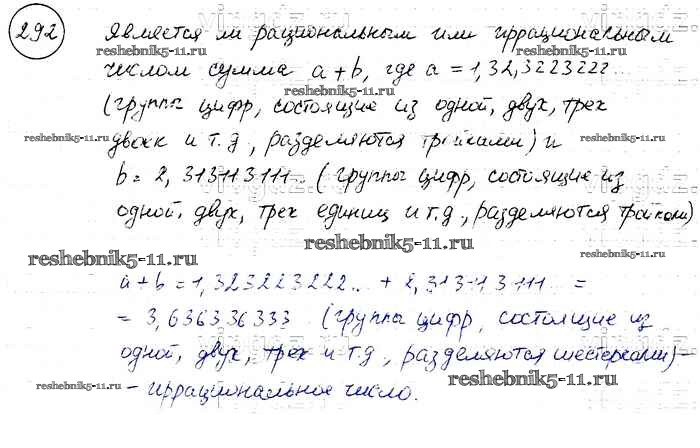 292 Является ли рациональным или иррациональным
reshebnik5-11.ru reshebnik5-11.ru
числом сумма a+b, где a = 1,32,3223222...
(группы цифр, состоящие из одной, двух, трех
reshebnik5-11.ru reshebnik5-11.ru
двоек и т.д, разделяются тройками) и
b = 2,313113111... (группы цифр, состоящие из
одной, двух, трех единиц и т.д, разделяются тройками)
reshebnik5-11.ru reshebnik5-11.ru
a+b = 1,323223222... + 2,313113111... =
= 3,636336333 (группы цифр, состоящие из
одной, двух, трех и т.д, разделяются шестерками) -
reshebnik5-11.ru reshebnik5-11.ru
- иррациональное число.